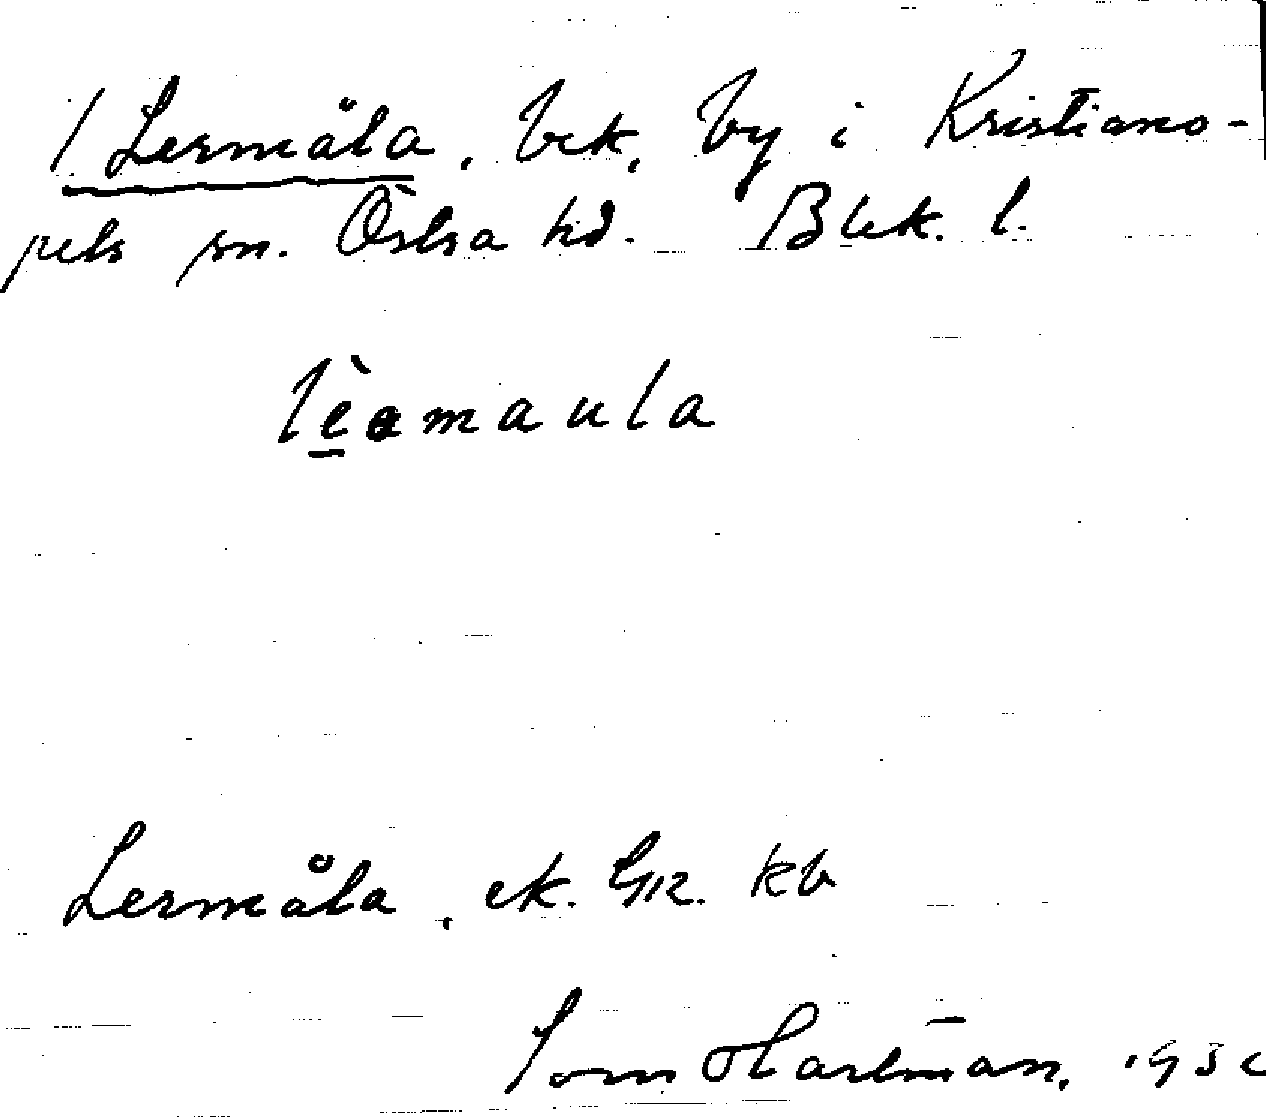 1. Lermåla, bek, by i Kristiano-
pels sn. Östra hd. Blek. l.
lèamaula
Lermåla, ek. GK. kb
Hartman, 193